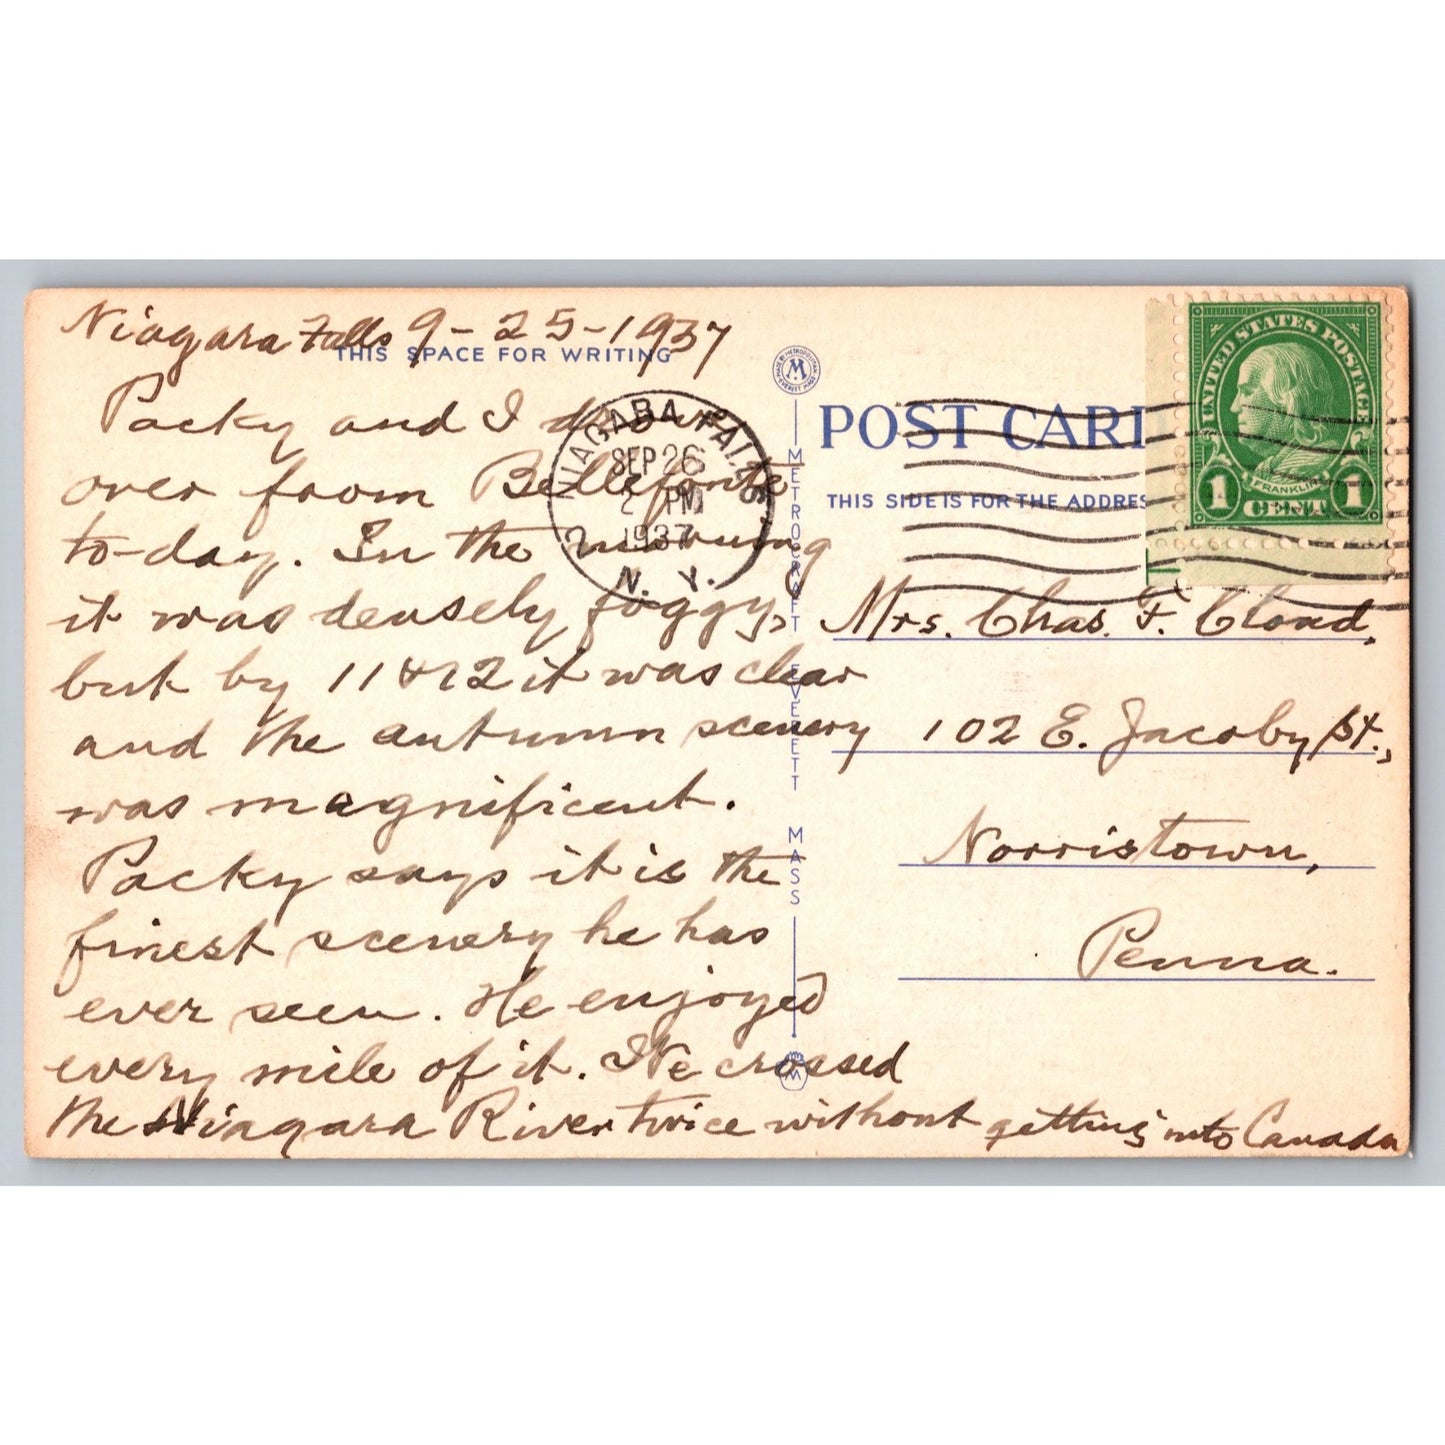 Niagara Falls 9-25-1937
THIS SPACE FOR WRITING
Packy and I drove
over from Bellefonte
to-day. In the morning
it was densely foggy,
but by 11 or 12 it was clear
and the autumn scenery
was magnificent.
Packy says it is the
finest scenery he has
ever seen. He enjoyed
every mile of it. We crossed
the Niagara River twice without getting into Canada
NIAGARA FALLS,
SEP 26
2 PM
1937
N. Y.
MADE BY METROPOLITAN
M
EVERETT MASS
METROCRAFT EVERETT MASS
POST CAR
THIS SIDE IS FOR THE ADDRES
UNITED STATES POSTAGE
FRANKLIN
1 CENT 1
Mrs. Chas. F. Cloud,
102 E. Jacoby St.,
Norristown,
Penna.